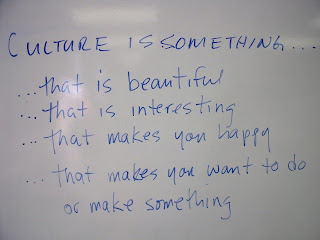 CULTURE IS SOMETHING...
...that is beautiful
...that is interesting
...that makes you happy
...that makes you want to do
or make something